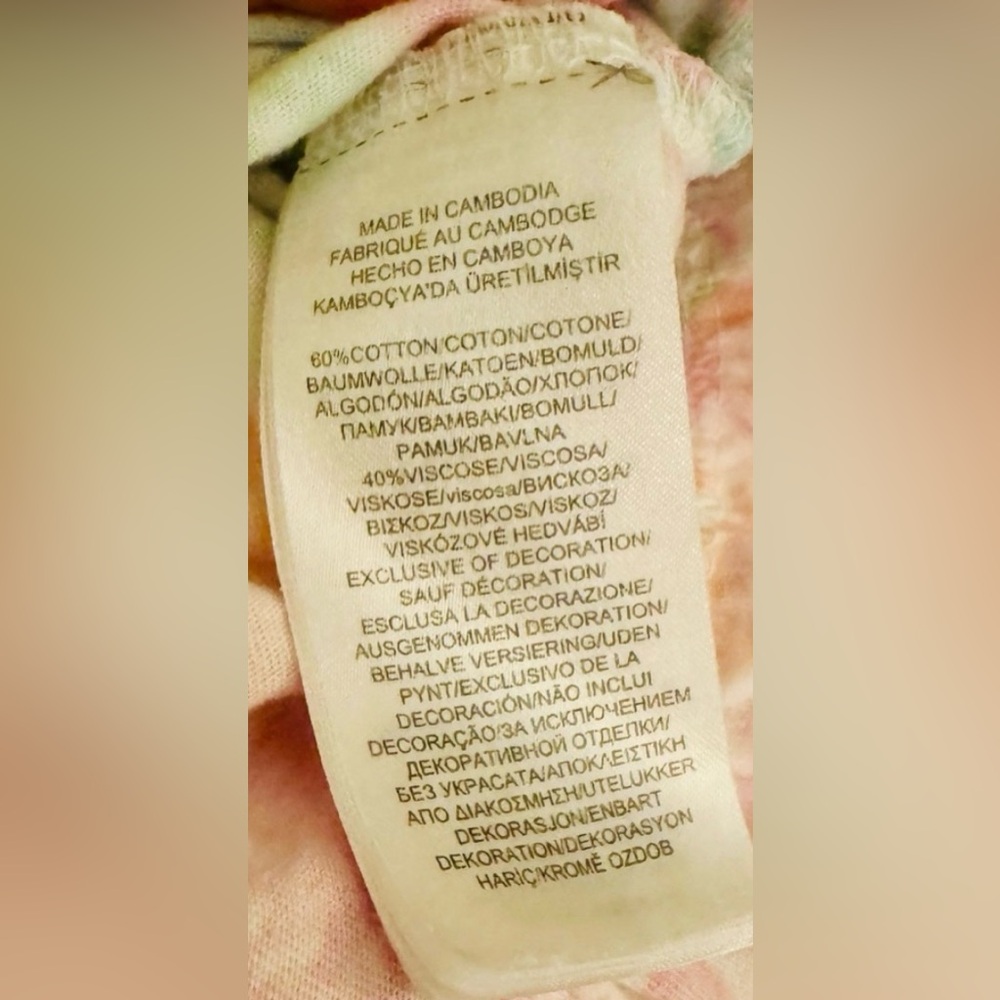 MADE IN CAMBODIA
FABRIQUÉ AU CAMBODGE
HECHO EN CAMBOYA
KAMBOÇYA'DA ÜRETİLMİŞTİR
60%COTTON/COTON/COTONE/
BAUMWOLLE/KATOEN/BOMULD/
ALGODÓN/ALGODÃO/ХЛОПОК/
ПАМУК/ΒΑΜΒΑΚΙ/BOMULL/
PAMUK/BAVLNA
40%VISCOSE/VISCOSA/
VISKOSE/viscosa/ВИСКОЗА/
ΒΙΣΚΟΖ/VISKOS/VİSKOZ/
VISKÓZOVÉ HEDVÁBÍ
EXCLUSIVE OF DECORATION/
SAUF DÉCORATION/
ESCLUSA LA DECORAZIONE/
AUSGENOMMEN DEKORATION/
BEHALVE VERSIERING/UDEN
PYNT/EXCLUSIVO DE LA
DECORACIÓN/NÃO INCLUI
DECORAÇÃO/ЗА ИСКЛЮЧЕНИЕМ
ДЕКОРАТИВНОЙ ОТДЕЛКИ/
БЕЗ УКРАСАТА/ΑΠΟΚΛΕΙΣΤΙΚΗ
ΑΠΟ ΔΙΑΚΟΣΜΗΣΗ/UTELUKKER
DEKORASJON/ENBART
DEKORATION/DEKORASYON
HARİÇ/KROMĚ OZDOB